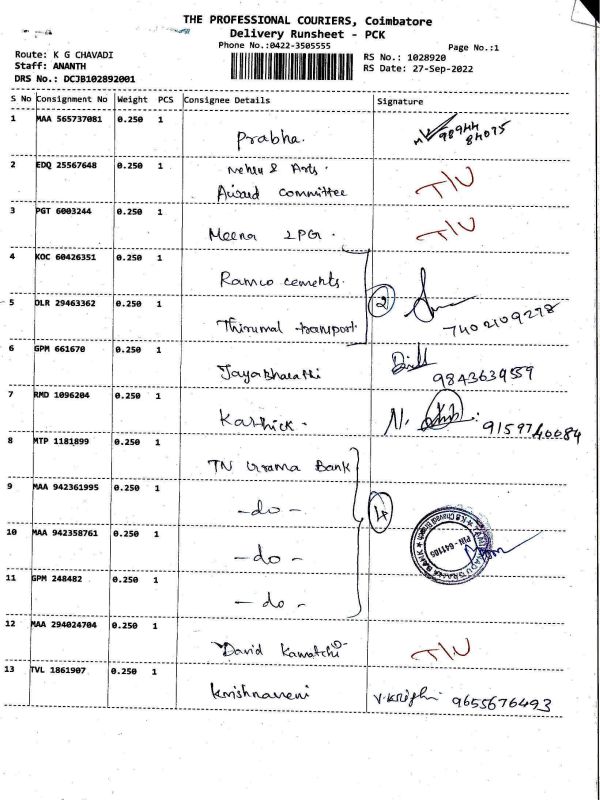 THE PROFESSIONAL COURIERS, Coimbatore
Delivery Runsheet - PCK
Phone No.:0422-3505555
Page No.:1
Route: K G CHAVADI
Staff: ANANTH
DRS No.: DCJB102892001
RS No.: 1028920
RS Date: 27-Sep-2022
S No Consignment No Weight PCS Consignee Details Signature
1 MAA 565737081 0.250 1 Prabha. 98944
84075
2 EDQ 25567648 0.250 1 Nehru & Arts. T/U
Award Committee
3 PGT 6003244 0.250 1 Meena 2PGr. T/U
4 KOC 60426351 0.250 1 Ramco cements.
2
5 DLR 29463362 0.250 1 Thirumal transport. 7402109278
6 GPM 661670 0.250 1 Jayabharathi 9843639559
7 RMD 1096204 0.250 1 Karthick. N. 9159740084
8 MTP 1181899 0.250 1 TN Grama Bank
9 MAA 942361995 0.250 1 -do- 4
10 MAA 942358761 0.250 1 -do-
TAMIL NADU GRAMA BANK ★ K.G Chavadi Branch ★
PIN - 641105
11 GPM 248482 0.250 1 -do-
12 MAA 294024704 0.250 1 David Kamatchi T/U
13 TVL 1861907 0.250 1 Krishnaveni V.Krishn 9655676493